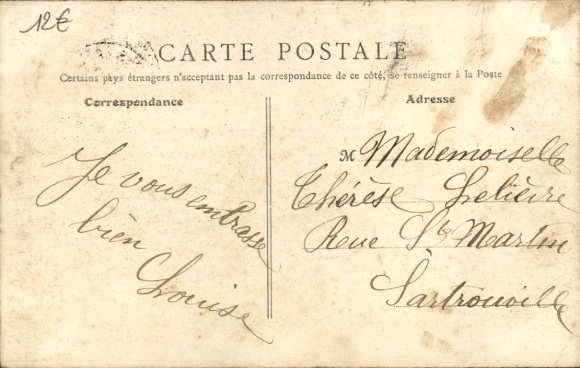 12€
CARTE POSTALE
Certains pays étrangers n'acceptant pas la correspondance de ce côté, se renseigner à la Poste
Correspondance
Je vous embrasse
bien
Louise
Adresse
M Mademoiselle
Thérèse Lelièvre
Rue St Martin
Sartrouville